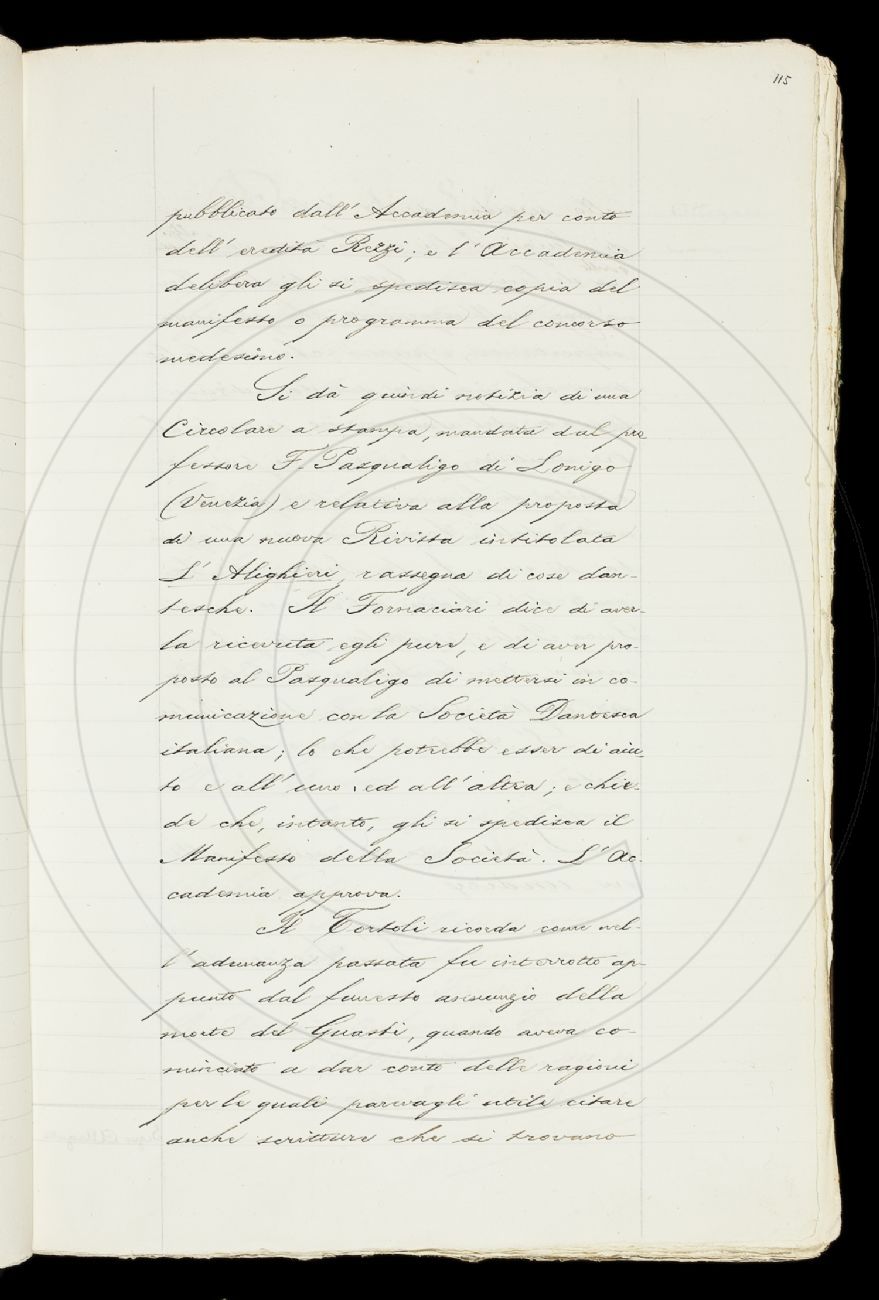 115
pubblicato dall'Accademia per conto
dell'eredità Rezzi; e l'Accademia
delibera gli si spedisca copia del
manifesto o programma del concorso
medesimo.
Si dà quindi notizia di una
Circolare a stampa, mandata dal pro
fessore F. Pasqualigo di Lonigo
(Venezia) e relativa alla proposta
di una nuova Rivista intitolata
L'Alighieri, rassegna di cose dan-
tesche. Il Fornaciari dice di aver-
la ricevuta egli pure, e di aver pro-
posto al Pasqualigo di mettersi in co-
municazione con la Società Dantesca
italiana; lo che potrebbe esser di aiu-
to e all'uno ed all'altra; e chie-
de che, intanto, gli si spedisca il
Manifesto della Società. L'Ac-
cademia approva.
Il Tortoli ricorda come nel-
l'adunanza passata fu interrotto ap-
punto dal funesto annunzio della
morte del Guasti, quando aveva co-
minciato a dar conto delle ragioni
per le quali parevagli utile citare
anche scritture che si trovano